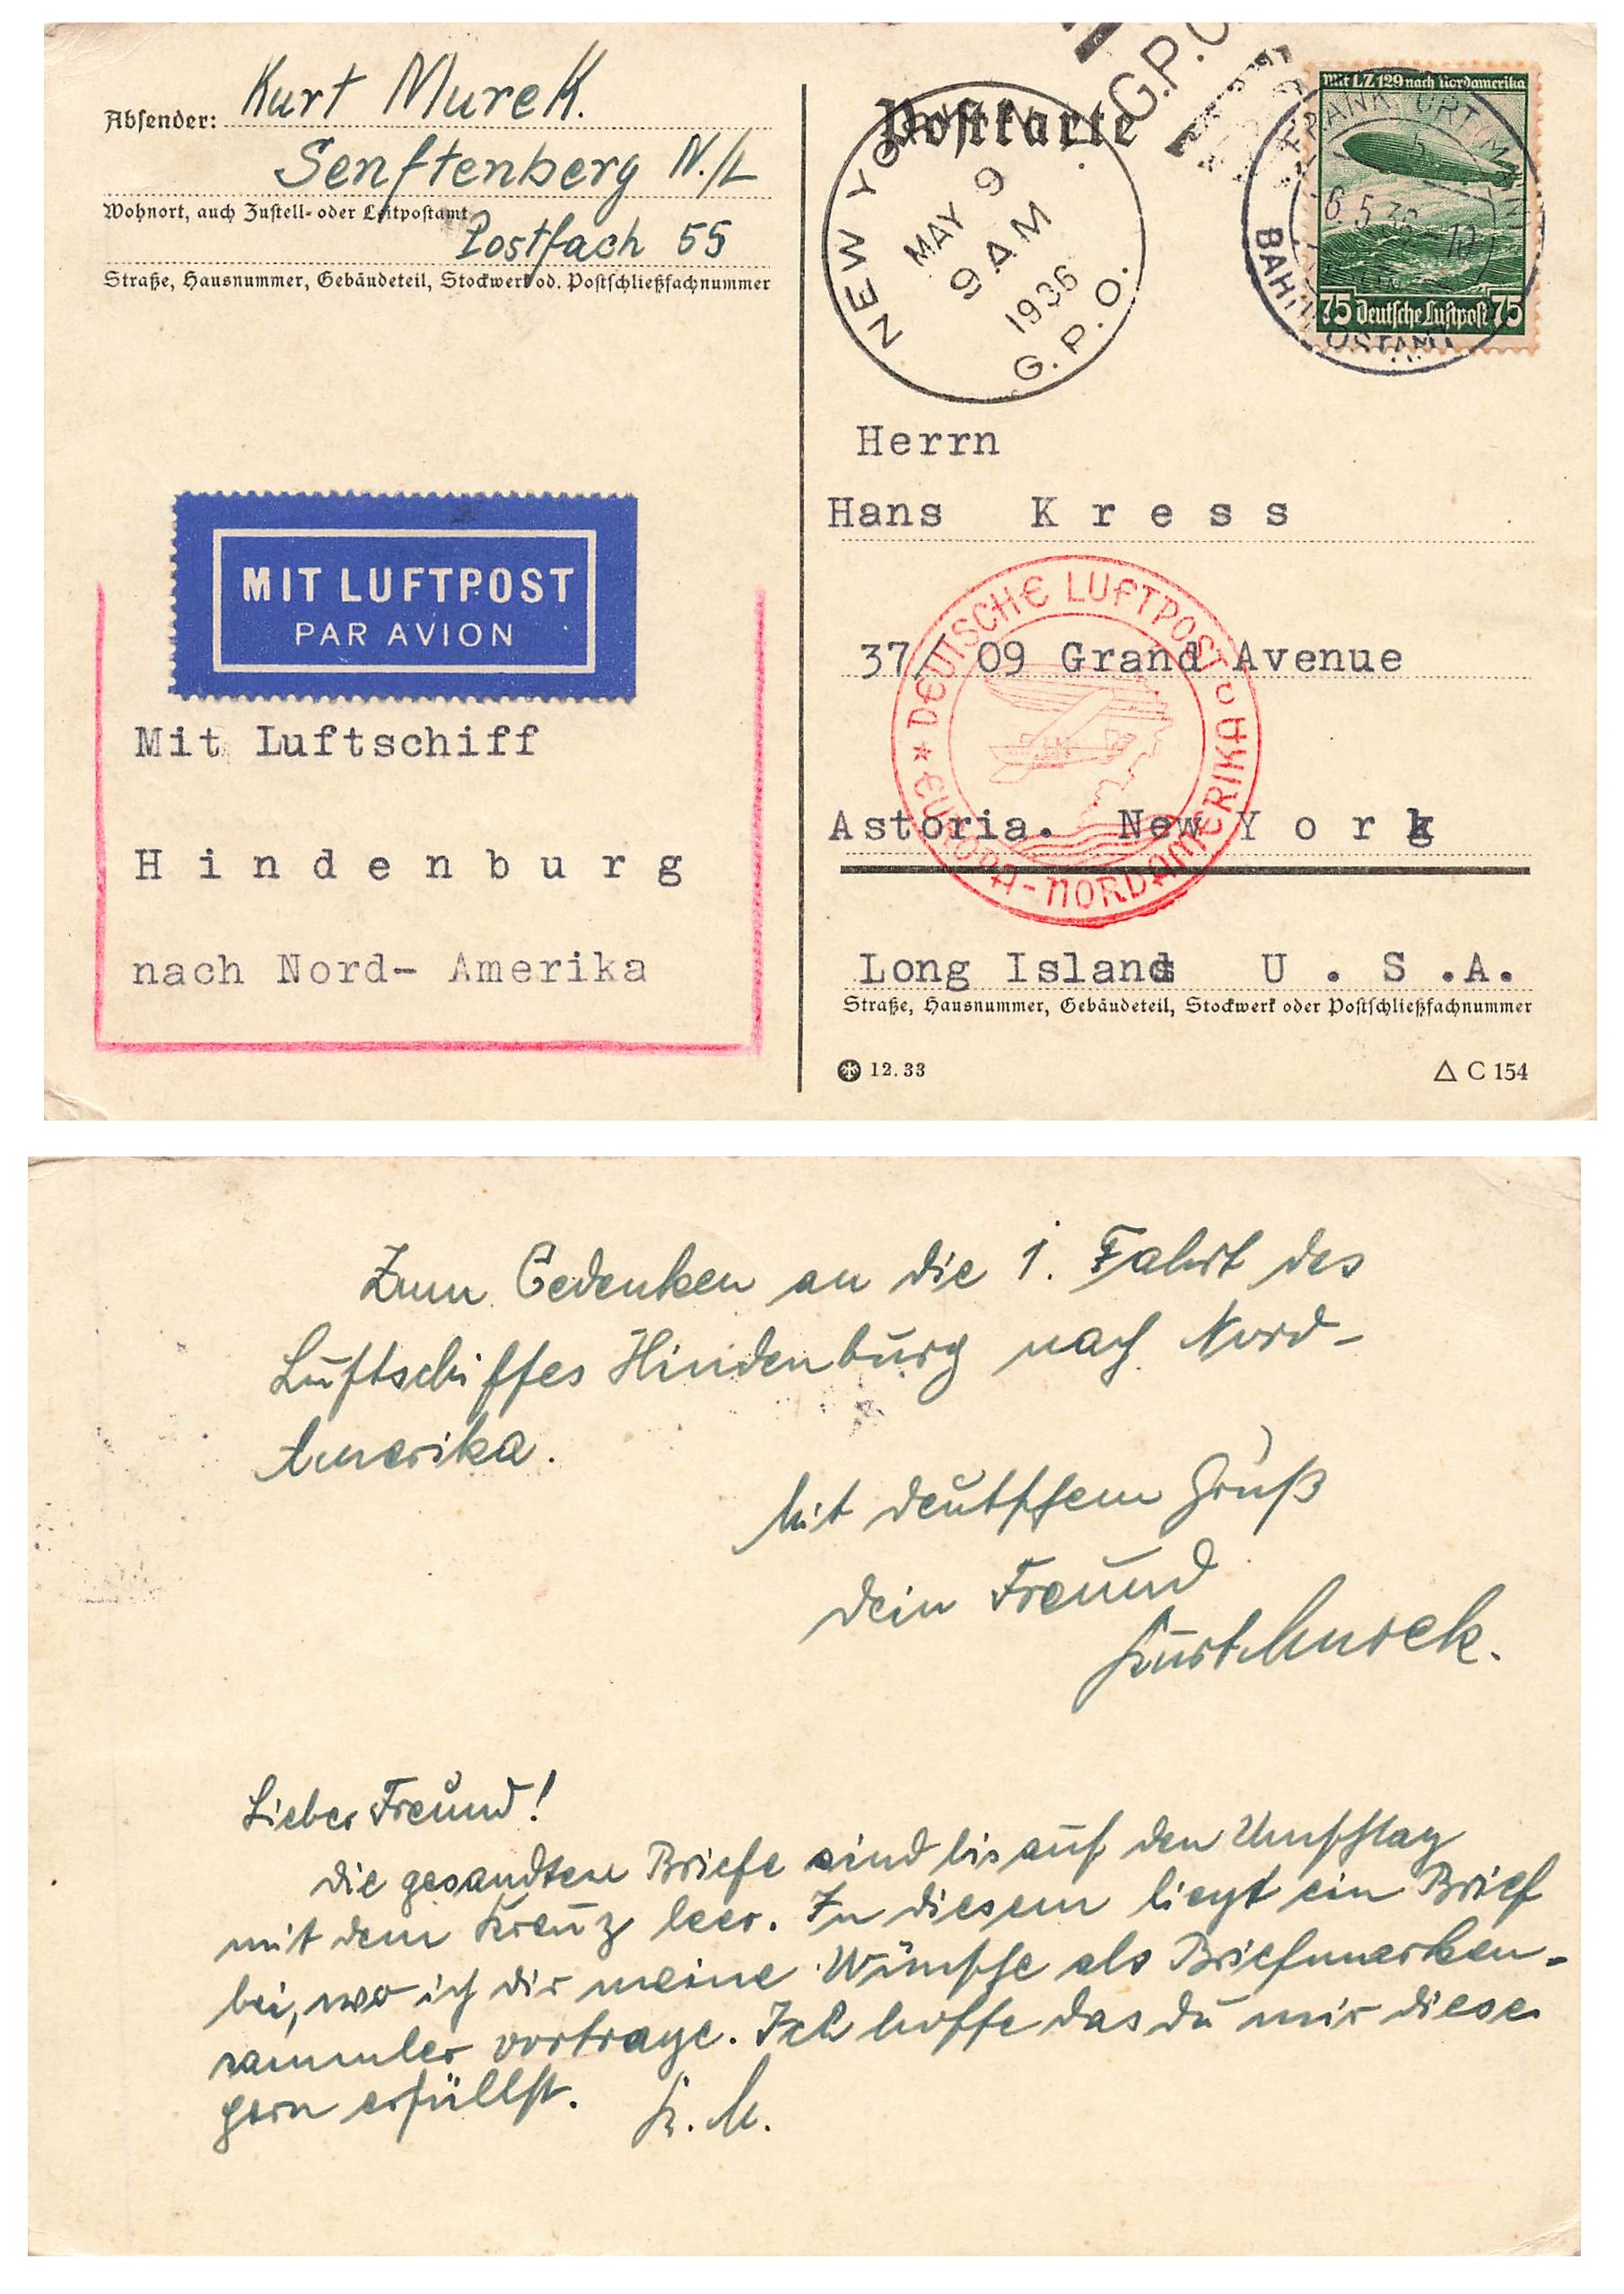 Absender: Kurt Murek.
Senftenberg N./L
Wohnort, auch Zustell- oder Leitpostamt
Postfach 55
Straße, Hausnummer, Gebäudeteil, Stockwerk od. Postschließfachnummer
MIT LUFTPOST
PAR AVION
Mit Luftschiff
Hindenburg
nach Nord- Amerika
Postkarte
G.P.O.
NEW YORK, N.Y.
MAY 9
9 AM
1936
G.P.O.
Mit LZ 129 nach Nordamerika
75 Deutsche Luftpost 75
FRANKFURT (MAIN)
6.5.36.-10
BAHNPOSTAMT
Herrn
Hans Kress
37/ 09 Grand Avenue
Astoria. New York
Long Island U . S .A.
DEUTSCHE LUFTPOST
EUROPA-NORDAMERIKA
Straße, Hausnummer, Gebäudeteil, Stockwerk oder Postschließfachnummer
12.33
C 154
Zum Gedenken an die 1. Fahrt des
Luftschiffes Hindenburg nach Nord-
Amerika.
Mit deutschem Gruß
dein Freund
Kurt Murek.
Lieber Freund!
die gesandten Briefe sind bis auf den Umschlag
mit dem Kreuz leer. In diesem liegt ein Brief
bei, wo ich dir meine Wünsche als Briefmarken-
sammler vortrage. Ich hoffe das du mir diese
gern erfüllst. K. M.